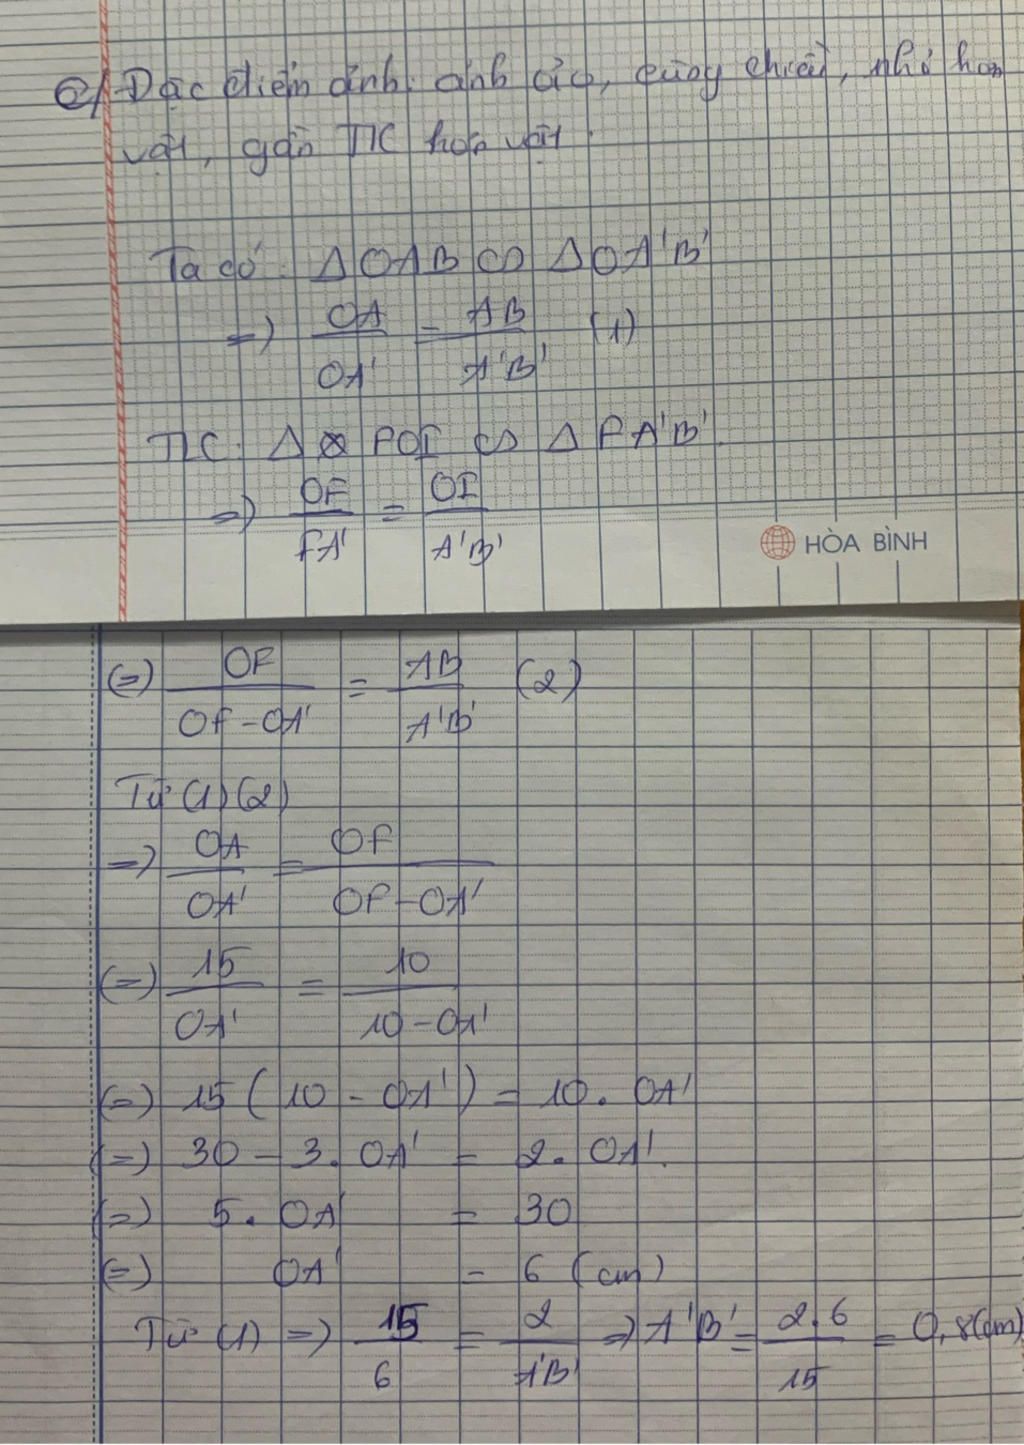 c/ Đặc điểm ảnh: ảnh ảo, cùng chiều, nhỏ hơn
vật, gần TK hơn vật.
Ta có: Δ OAB ∽ Δ OA'B'
=> OA/OA' = AB/A'B' (1)
TK: Δ FOI ∽ Δ FA'B'.
=> OF/FA' = OI/A'B'
HÒA BÌNH
(=) OF/(OF - OA') = AB/A'B' (2)
Từ (1) (2)
=> OA/OA' = OF/(OF - OA')
(=) 15/OA' = 10/(10 - OA')
(=) 15 (10 - OA') = 10. OA'
(=) 30 - 3. OA' = 2. OA'.
(=) 5. OA' = 30
(=) OA' = 6 (cm)
Từ (1) => 15/6 = 2/A'B' => A'B' = 2.6/15 = 0,8(cm)